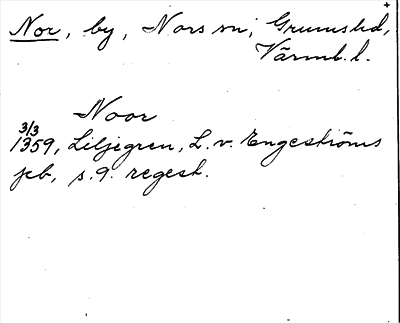 Nor, by, Nors sn; Grums hd,
Värml. l.
Noor
3/3
1359, Liljegren, L. v. Engeströms
peb, s. 9. regest.